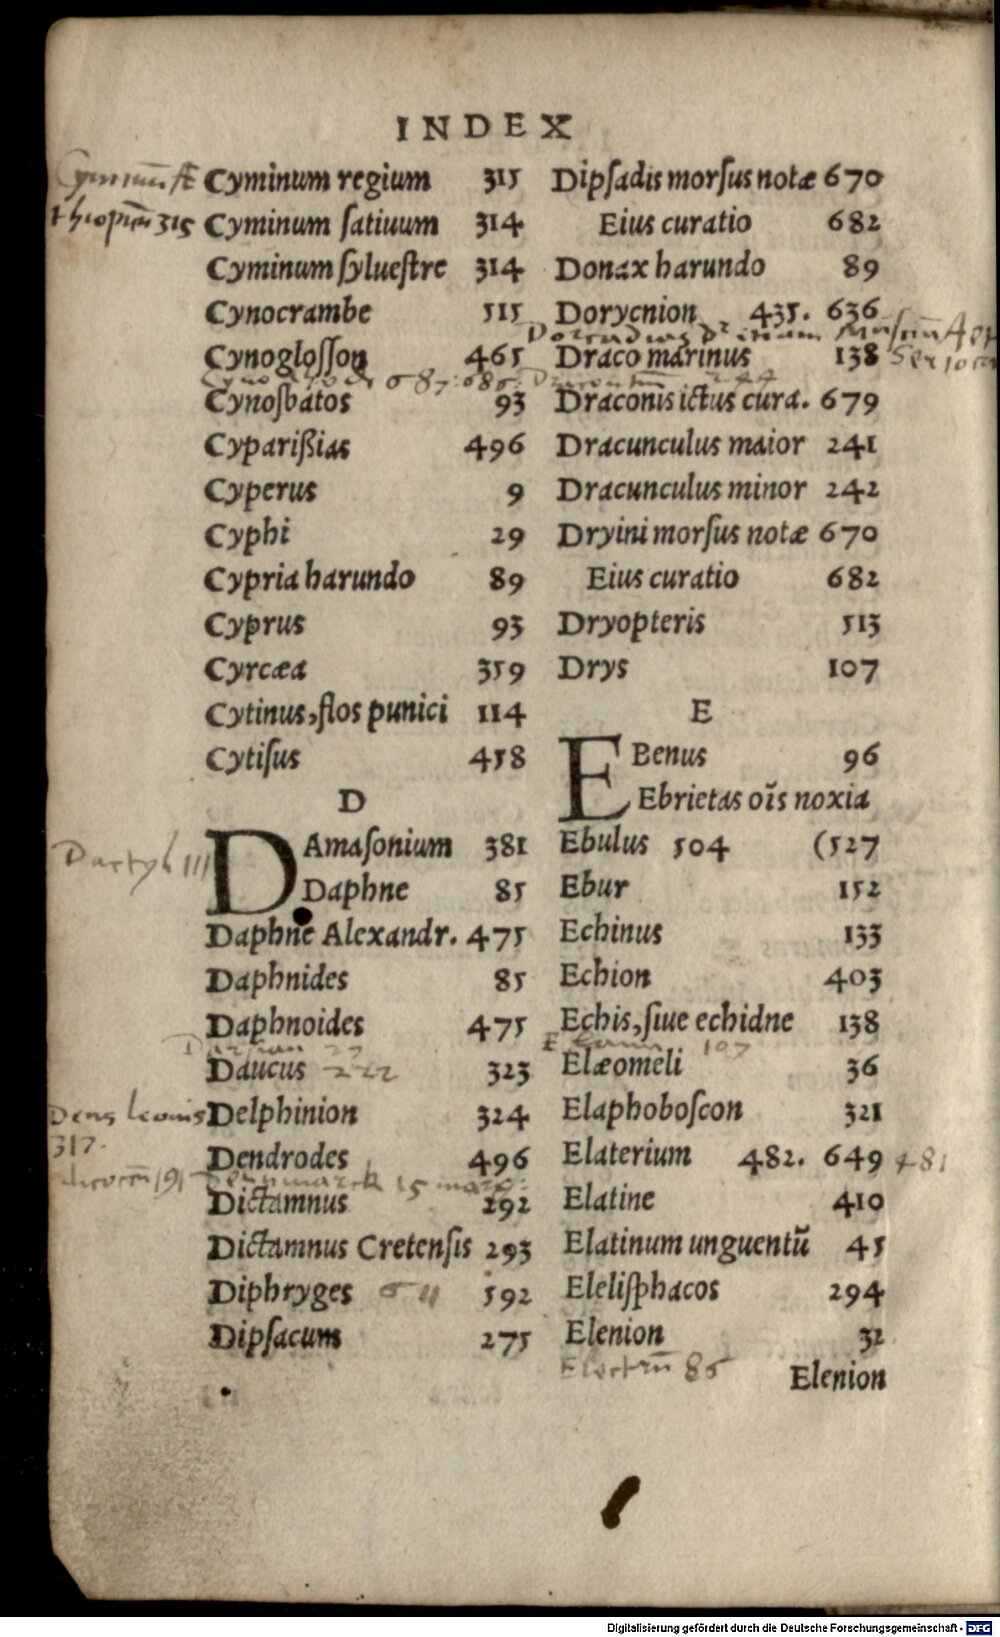 INDEX
Cyminum regium 315
Cyminum ſatiuum 314
Cyminum ſylueſtre 314
Cynocrambe 515
Cynogloſſon 465
Cynoſbatos 93
Cyparißias 496
Cyperus 9
Cyphi 29
Cypria harundo 89
Cyprus 93
Cyrcæa 359
Cytinus, flos punici 114
Cytiſus 458
D
DAmaſonium 381
Daphne 85
Daphne Alexandr. 475
Daphnides 85
Daphnoides 475
Daucus 222 323
Dens leonis 317.
Delphinion 324
Dendrodes 496
Dictamnus 292
Dictamnus Cretenſis 293
Diphryges 611 592
Dipſacum 275
Dipſadis morſus notæ 670
Eius curatio 682
Donax harundo 89
Dorycnion 435. 636
Draco marinus 138
Draconis ictus cura. 679
Dracunculus maior 241
Dracunculus minor 242
Dryini morſus notæ 670
Eius curatio 682
Dryopteris 513
Drys 107
E
EBenus 96
Ebrietas oĩs noxia
Ebulus 504 (527
Ebur 152
Echinus 133
Echion 403
Echis, ſiue echidne 138
107
Elæomeli 36
Elaphoboſcon 321
Elaterium 482. 649 481
Elatine 410
Elatinum unguentũ 45
Eleliſphacos 294
Elenion 32
Electrũ 86
Elenion
Digitalisierung gefördert durch die Deutsche Forschungsgemeinschaft - DFG